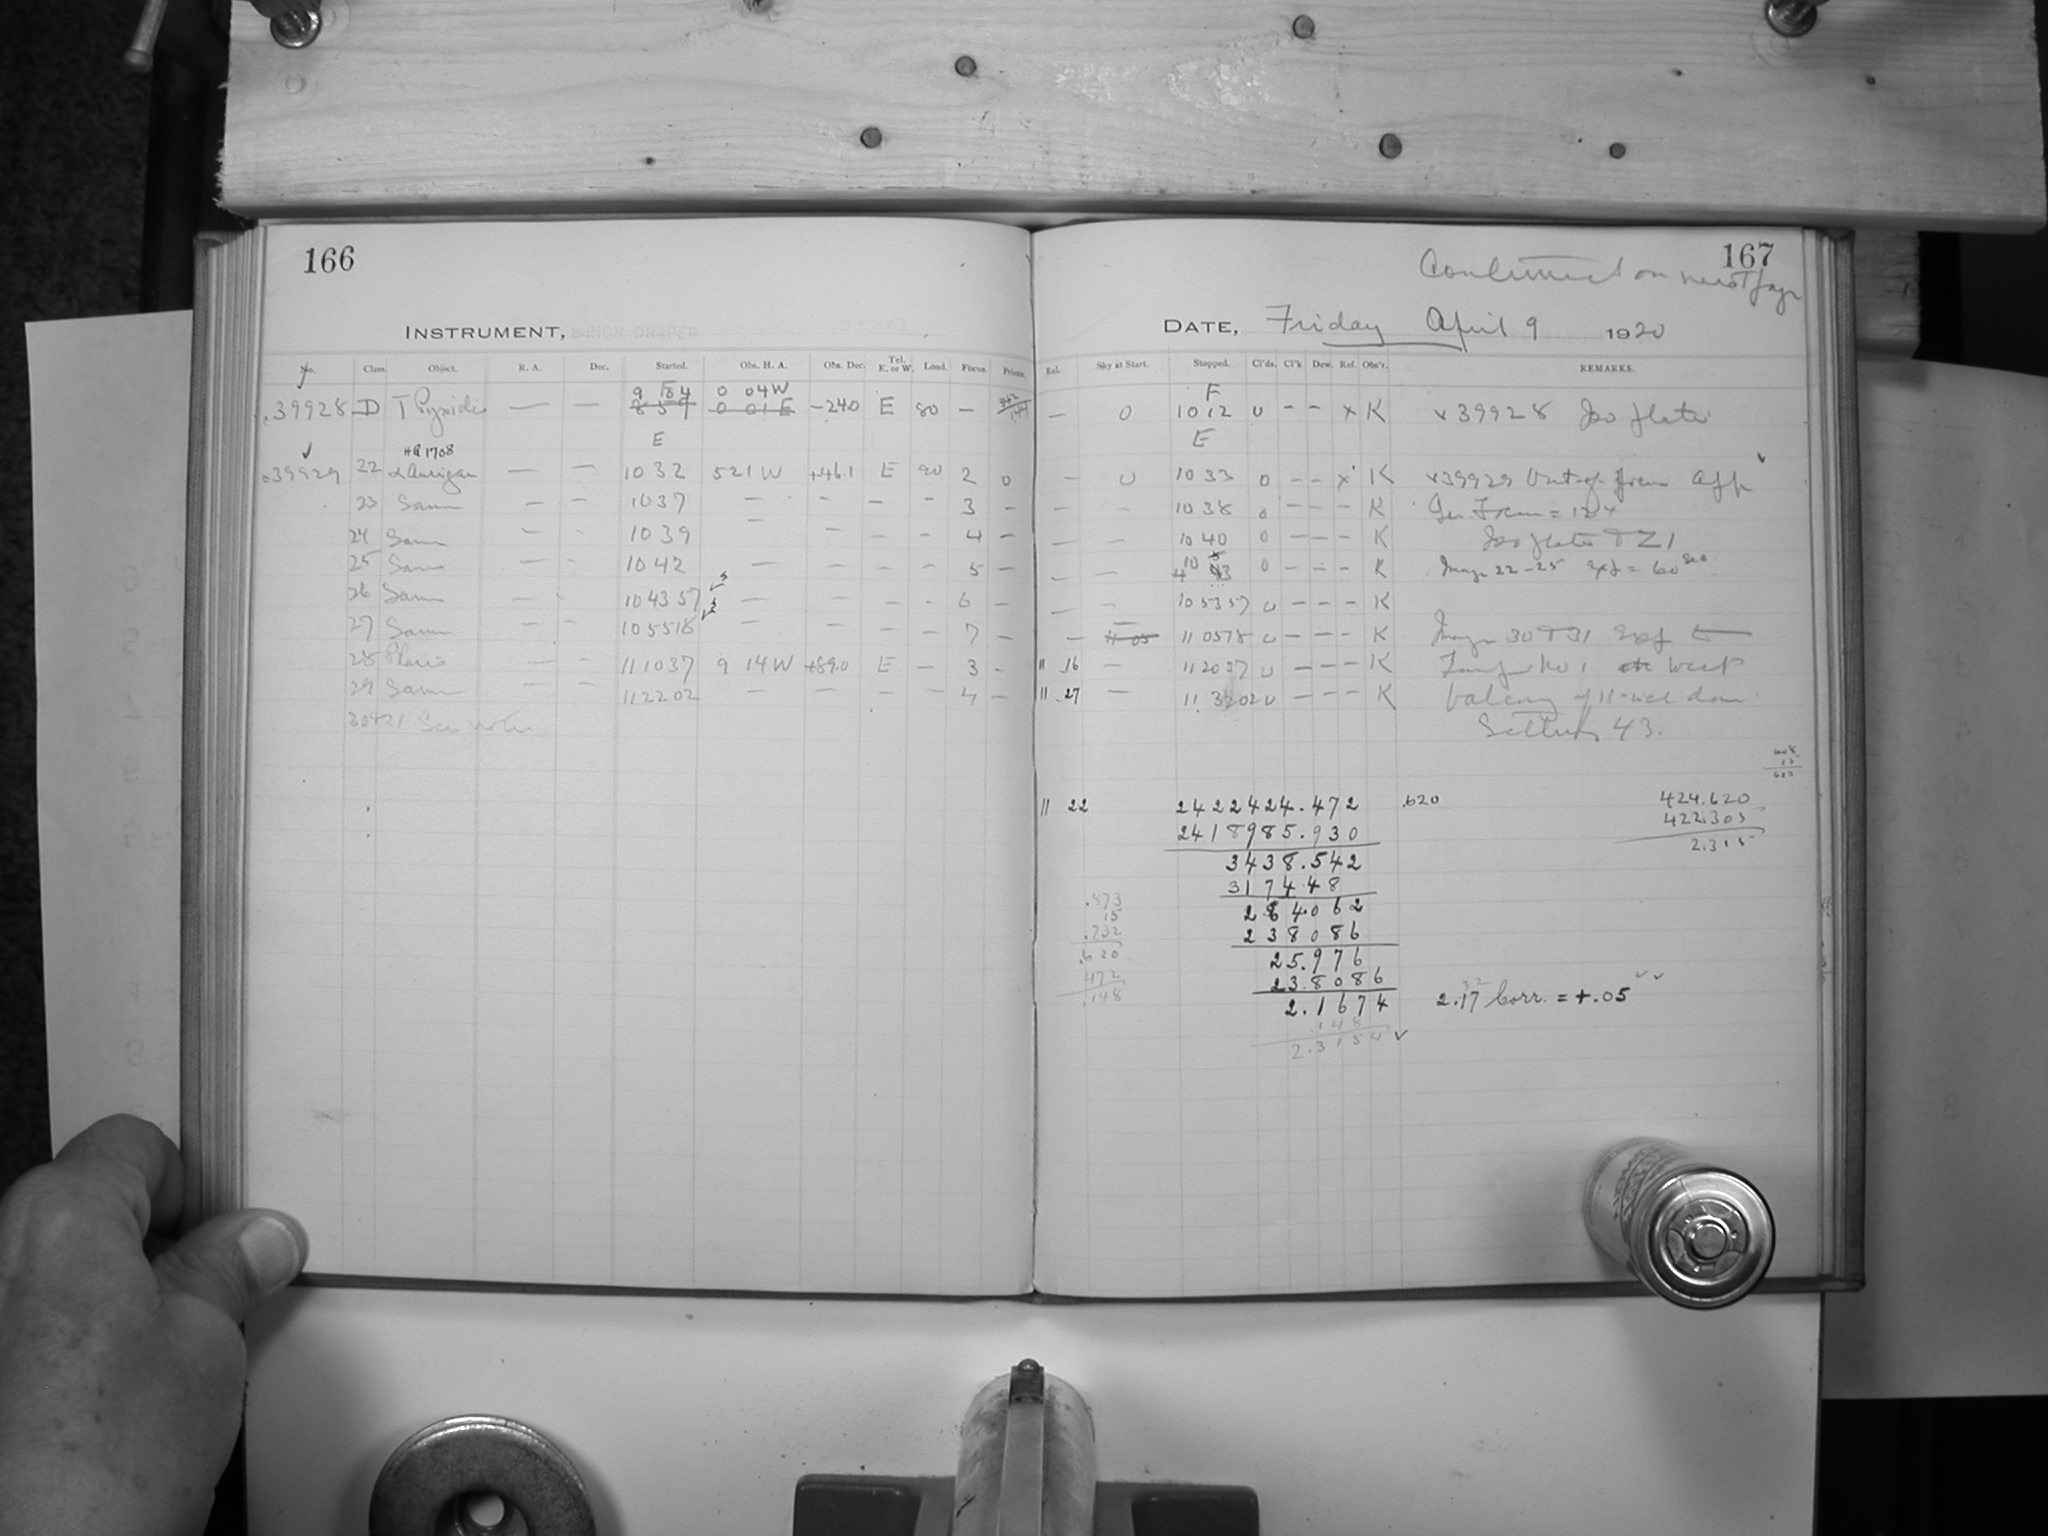 166
INSTRUMENT, 8-INCH DRAPER
No. Class. Object. R. A. Dec. Started. Obs. H. A. Obs. Dec. Tel. E. or W. Load. Focus. Prisms.
9 54 0 04 W
39928 D T Pyxidis — — 8 59 0 01 E -240 E 80 —
E
HR 1708
39929 22 α Aurigae — — 10 32 5 21 W +46.1 E 90 2 0
23 Same — — 10 37 — — — — 3 —
24 Same — — 10 39 — — — — 4 —
25 Same — — 10 42 — — — — 5 —
26 Same — — 10 43 57 — — — — 6 —
27 Same — — 10 55 18 — — — — 7 —
28 — — 11 10 37 9 14 W +89.0 E — 3 —
29 Same — — 11 22 02 — — — — 4 —
30+31 See notes
167
Continued on next page
DATE, Friday April 9 1920
Exl. Sky at Start. Stopped. Cl'ds. Cl'k Dew. Ref. Obs'r. REMARKS.
F
— 0 10 12 0 — — x K x 39928 Iso plate
E
— 0 10 33 0 — — x K x 39929 Out of focus
— — 10 38 0 — — — K
— — 10 40 0 — — — K Iso plate
— — 10 43 0 — — — K Image 22-25 Exp = 60 sec
— — 10 53 57 0 — — — K
— 11 05 11 05 18 0 — — — K Image 30 + 31 Exp
11 16 — 11 20 37 0 — — — K No 1 West
11 27 — 11 32 02 0 — — — K balcony of 11-inch dome
Setting 43.
11 22 2422424.472 .620 424.620
2418985.930 422.305
3438.542 2.315
317448
264062
238086
25.976
23.8086
2.1674 2.17 Corr. = +.05
.148
2.3154
.873
15
.732
.620
472
.148